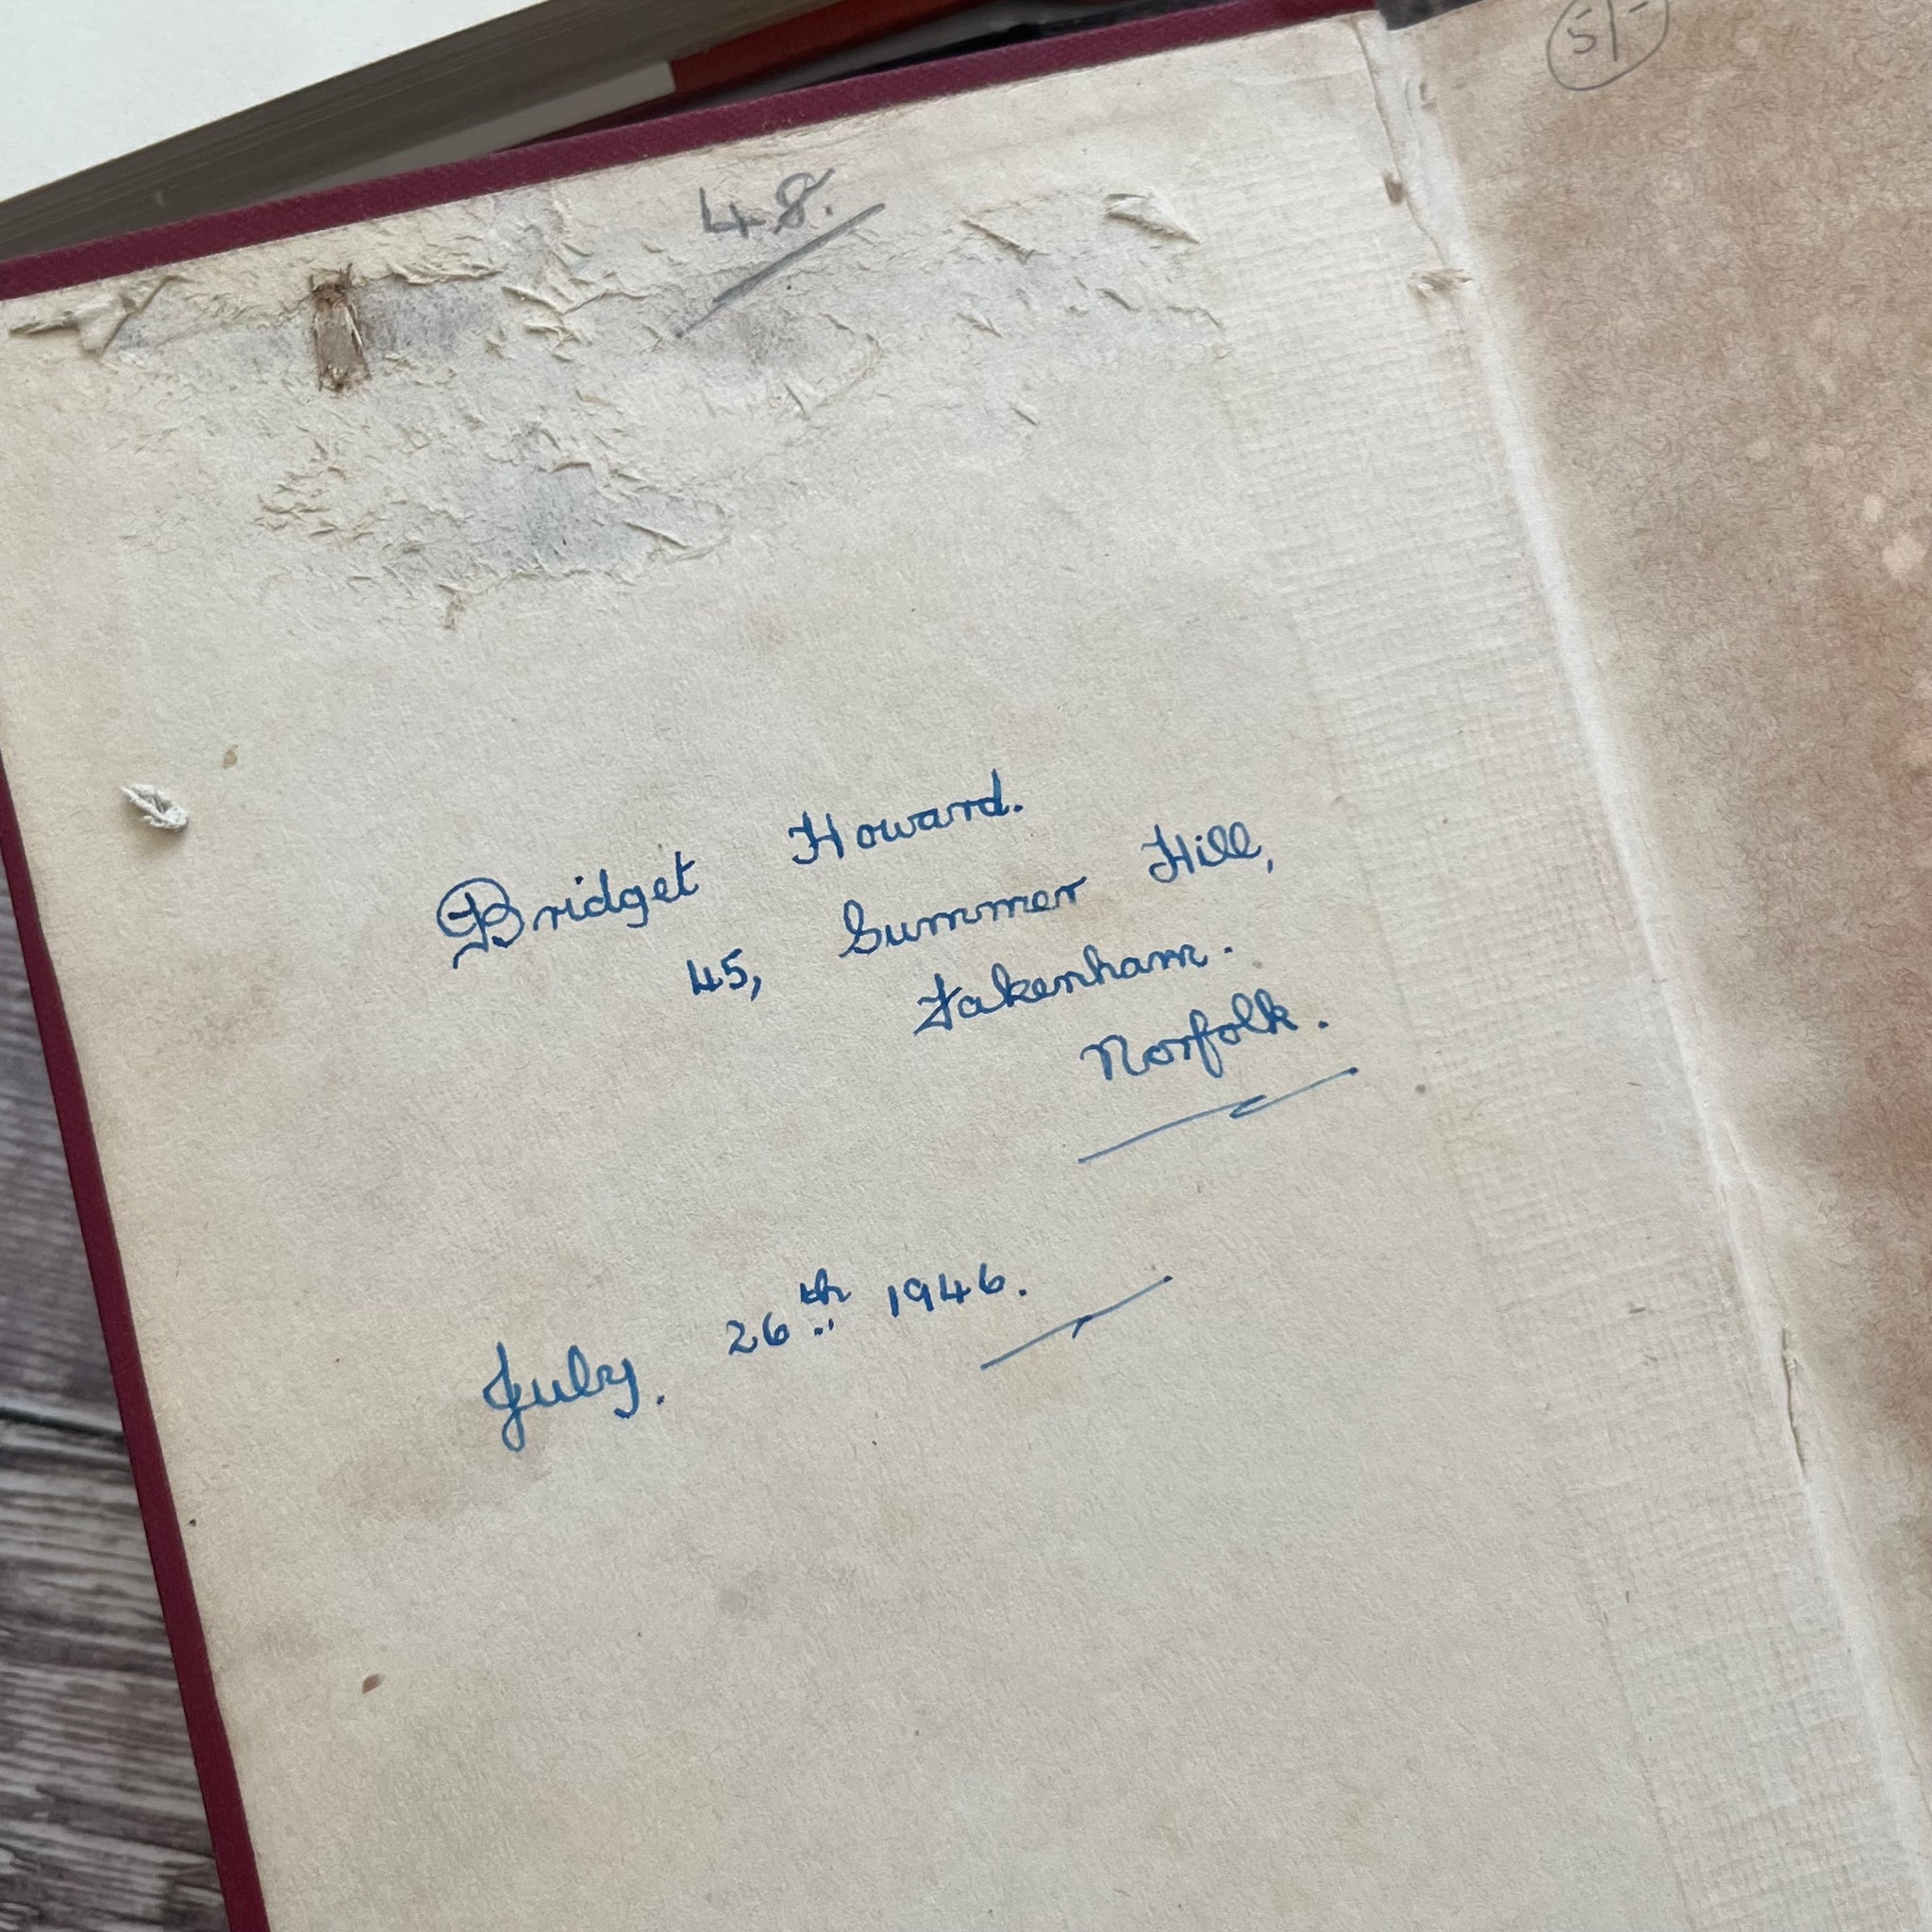 5/-
48.
Bridget Howard.
45, Summer Hill,
Fakenham.
Norfolk.
July. 26th 1946.